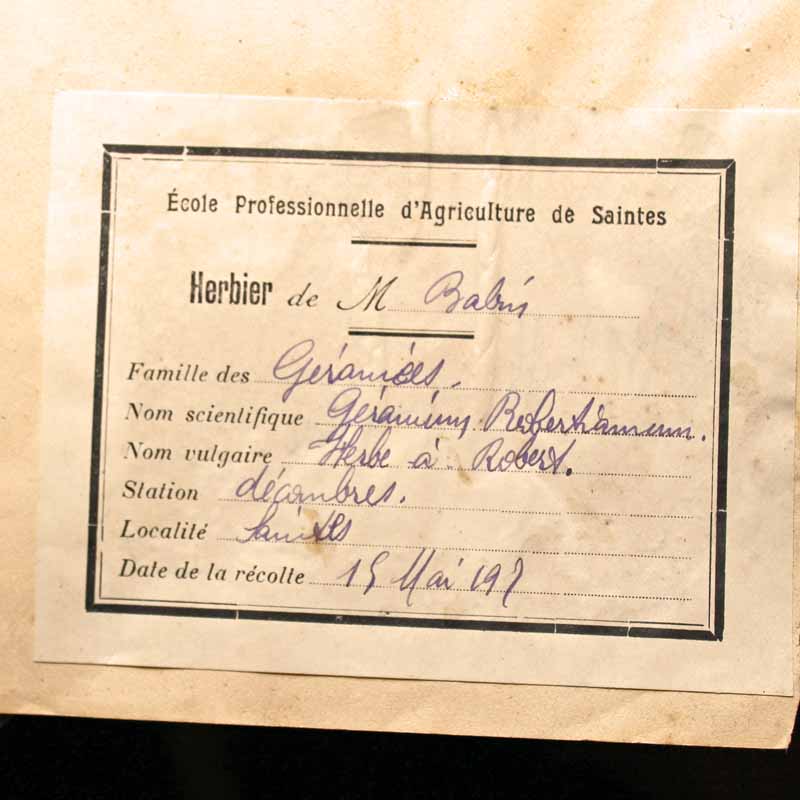 École Professionnelle d'Agriculture de Saintes
Herbier de M
Famille des Géraniées.
Nom scientifique Géranium Robertianum.
Nom vulgaire Herbe à Robert.
Station décombres.
Localité Saintes
Date de la récolte 15 Mai